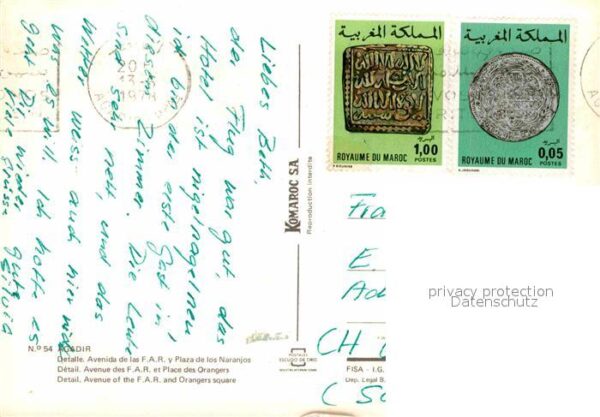 Liebes Beth,
der Flug war gut, das
Hotel ist nigelnagelneu,
ich bin der erste Gast in
diesem Zimmer. Die Leute
sind sehr nett, und das
Wetter
was ich will. Ich hoffe es
geht Dir wieder gut.
Viele Grüsse Silvia
المملكة المغربية
1,00
ROYAUME DU MAROC POSTES
المملكة المغربية
0,05
ROYAUME DU MAROC POSTES
20
KOMAROC S.A.
Reproduction interdite
Fra
E
Ad
CH
(S
privacy protection
Datenschutz
N.º 54 AGADIR
Detalle. Avenida de las F.A.R. y Plaza de los Naranjos
Détail. Avenue des F.A.R. et Place des Orangers
Detail. Avenue of the F.A.R. and Orangers square
POSTALES
ESCUDO DE ORO
FISA - I.G.
Dep. Legal B.